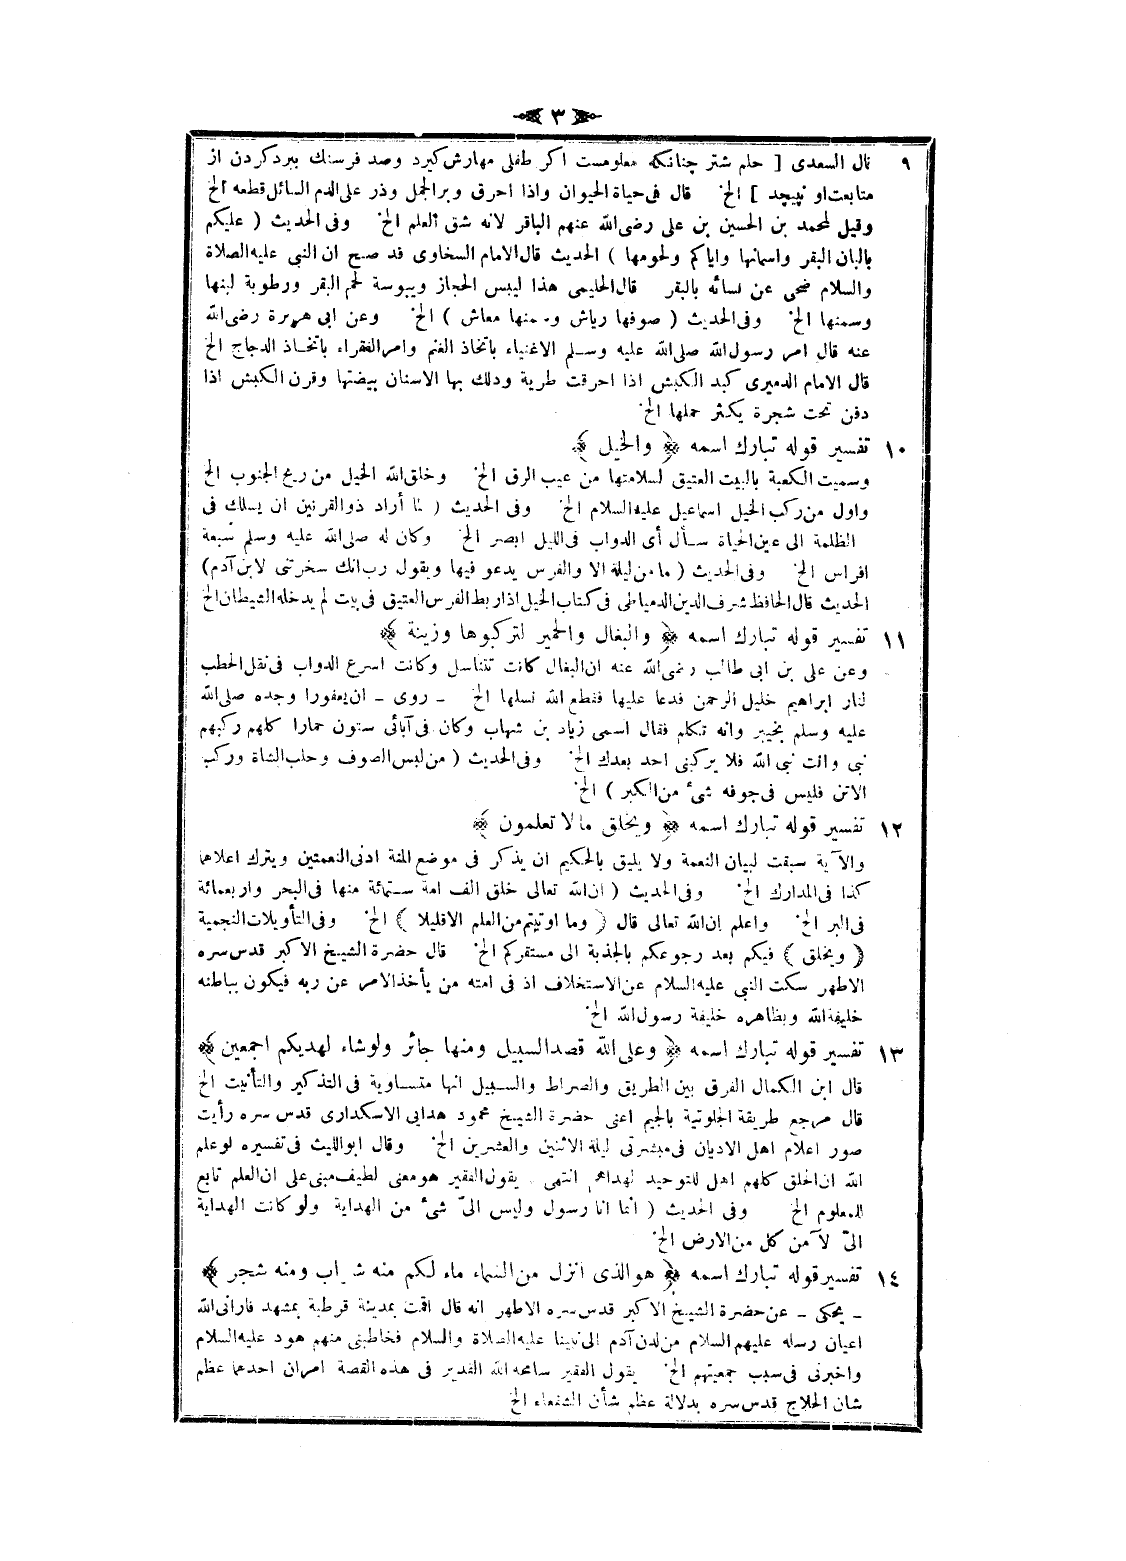 ٣
٩ قال السعدى [ حلم شتر چنانكه معلومست اكر طفلى مهارش كيرد وصد فرسنك ببرد كردن از
متابعت او نپيچد ] الخ قال فى حياة الحيوان واذا احرق وبر الجمل وذر على الدم السائل قطعه الخ
وقيل لمحمد بن الحسين بن على رضى الله عنهم الباقر لانه شق العلم الخ وفى الحديث ( عليكم
بالبان البقر واسمانها واياكم ولحومها ) الحديث قال الامام السخاوى قد صح ان النبى عليه الصلاة
والسلام ضحى عن نسائه بالبقر قال الحليمى هذا ليبس الحجاز ويبوسة لحم البقر ورطوبة لبنها
وسمنها الخ وفى الحديث ( صوفها رياش وسمنها معاش ) الخ وعن ابى هريرة رضى الله
عنه قال امر رسول الله صلى الله عليه وسلم الاغنياء باتخاذ الغنم وامر الفقراء باتخاذ الدجاج الخ
قال الامام الدميرى كبد الكبش اذا احرقت طرية ودلك بها الاسنان بيضتها وقرن الكبش اذا
دفن تحت شجرة يكثر حملها الخ
١٠ تفسير قوله تبارك اسمه ﴿ والخيل ﴾
وسميت الكعبة بالبيت العتيق لسلامتها من عيب الرق الخ وخلق الله الخيل من ريح الجنوب الخ
واول من ركب الخيل اسماعيل عليه السلام الخ وفى الحديث ( لما أراد ذو القرنين ان يسلك فى
الظلمة الى عين الحياة سأل أى الدواب فى الليل ابصر الخ وكان له صلى الله عليه وسلم سبعة
افراس الخ وفى الحديث ( ما من ليلة الا والفرس يدعو فيها ويقول رب انك سخرتنى لابن آدم)
الحديث قال الحافظ شرف الدين الدمياطى فى كتاب الخيل اذا ربط الفرس العتيق فى بيت لم يدخله الشيطان الخ
١١ تفسير قوله تبارك اسمه ﴿ والبغال والحمير لتركبوها وزينة ﴾
وعن على بن ابى طالب رضى الله عنه ان البغال كانت تتناسل وكانت اسرع الدواب فى نقل الحطب
لنار ابراهيم خليل الرحمن فدعا عليها فقطع الله نسلها الخ ـ روى ـ ان يعفورا وجده صلى الله
عليه وسلم بخيبر وانه تكلم فقال اسمى زياد بن شهاب وكان فى آبائى ستون حمارا كلهم ركبهم
نبى وانت نبى الله فلا يركبنى احد بعدك الخ وفى الحديث ( من لبس الصوف وحلب الشاة وركب
الاتن فليس فى جوفه شئ من الكبر ) الخ
١٢ تفسير قوله تبارك اسمه ﴿ ويخلق مالا تعلمون ﴾
والآية سبقت لبيان النعمة ولا يليق بالحكيم ان يذكر فى موضع المنة ادنى النعمتين ويترك اعلاهما
كذا فى المدارك الخ وفى الحديث ( ان الله تعالى خلق الف امة ستمائة منها فى البحر واربعمائة
فى البر الخ واعلم ان الله تعالى قال ﴿ وما اوتيتم من العلم الا قليلا ﴾ الخ وفى التأويلات النجمية
﴿ ويخلق ﴾ فيكم بعد رجوعكم بالجذبة الى مستقركم الخ قال حضرة الشيخ الاكبر قدس سره
الاطهر سكت النبى عليه السلام عن الاستخلاف اذ فى امته من يأخذ الامر عن ربه فيكون بباطنه
خليفة الله وبظاهره خليفة رسول الله الخ
١٣ تفسير قوله تبارك اسمه ﴿ وعلى الله قصد السبيل ومنها جائر ولو شاء لهديكم اجمعين ﴾
قال ابن الكمال الفرق بين الطريق والصراط والسبيل انها متساوية فى التذكير والتأنيث الخ
قال مرجع طريقة الجلوتية بالجيم اعنى حضرة الشيخ محمود هدايى الاسكدارى قدس سره رأيت
صور اعلام اهل الاديان فى مبشرتى ليلة الاثنين والعشرين الخ وقال ابو الليث فى تفسيره لو علم
الله ان الخلق كلهم اهل للتوحيد لهداهم انتهى يقول الفقير هو معنى لطيف مبنى على ان العلم تابع
للمعلوم الخ وفى الحديث ( انما انا رسول وليس الىّ شئ من الهداية ولو كانت الهداية
الىّ لآمن كل من الارض الخ
١٤ تفسير قوله تبارك اسمه ﴿ هو الذى انزل من السماء ماء لكم منه شراب ومنه شجر ﴾
ـ يحكى ـ عن حضرة الشيخ الاكبر قدس سره الاطهر انه قال اقمت بمدينة قرطبة بمشهد فارانى الله
اعيان رسله عليهم السلام من لدن آدم الى نبينا عليه الصلاة والسلام فخاطبنى منهم هود عليه السلام
واخبرنى فى سبب جمعيتهم الخ يقول الفقير سامحه الله القدير فى هذه القصة امران احدهما عظم
شان الحلاج قدس سره بدلالة عظم شأن الشفعاء الخ